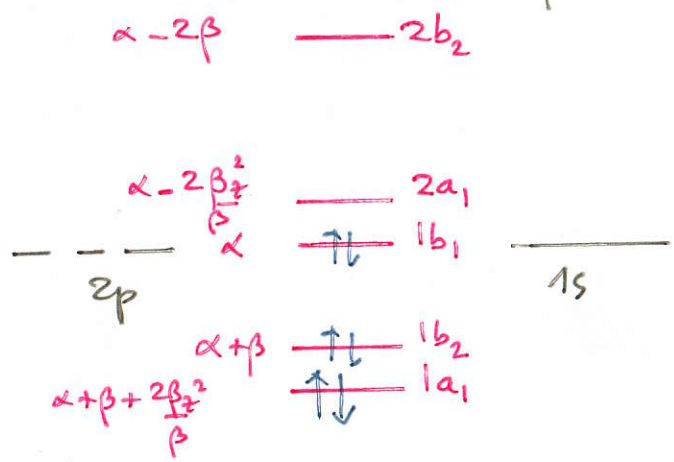 α - 2β 2b₂
α - 2β_z²/β 2a₁
α 1b₁
2p 1s
α+β 1b₂
α+β+2β_z²/β 1a₁